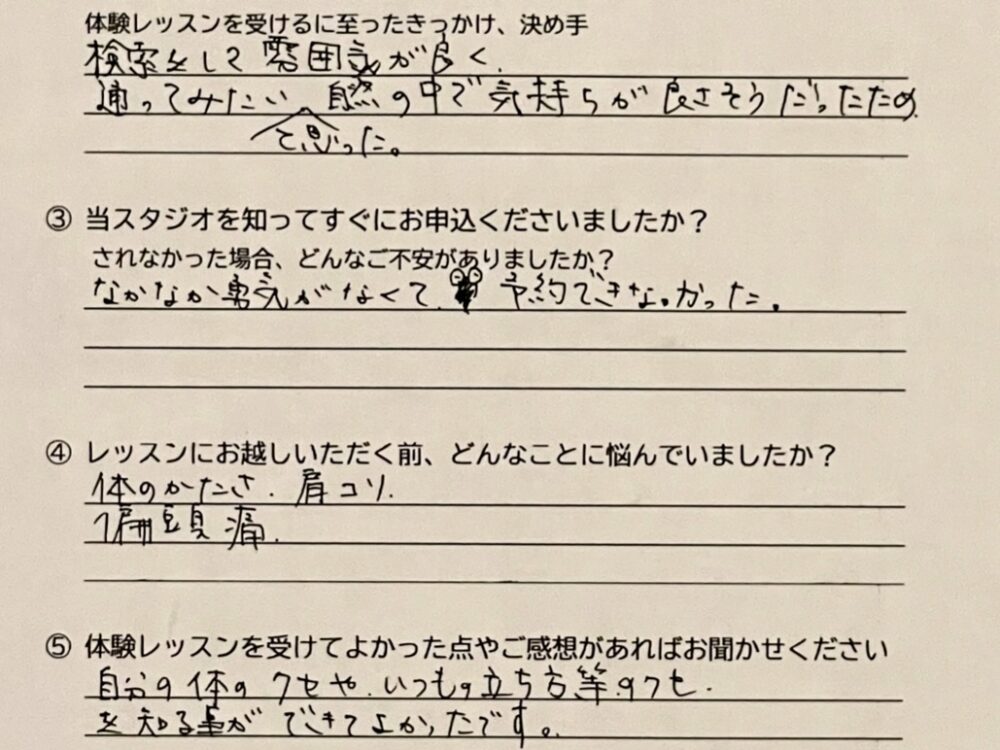 体験レッスンを受けるに至ったきっかけ、決め手
検索をして雰囲気が良く、
通ってみたい 自然の中で気持ちが良さそうだったため
て思った。
③ 当スタジオを知ってすぐにお申込くださいましたか？
されなかった場合、どんなご不安がありましたか？
なかなか勇気がなくて、予約できなかった。
④ レッスンにお越しいただく前、どんなことに悩んでいましたか？
体のかたさ、肩コリ、
偏頭痛、
⑤ 体験レッスンを受けてよかった点やご感想があればお聞かせください
自分の体のクセや、いつもの立ち方等のクセ、
を知る事ができてよかったです。